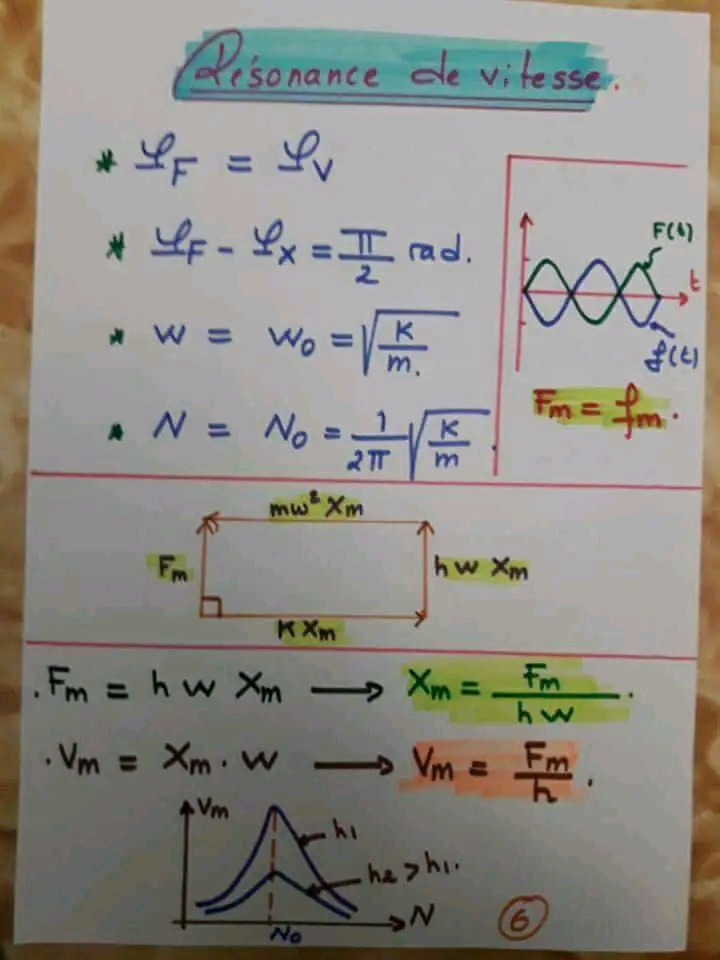 Résonance de vitesse.
* φF = φV
* φF - φx = π/2 rad.
* w = w₀ = √(K/m.)
* N = N₀ = 1/2π √(K/m).
F(t)
t
f(t)
Fm = fm.
mw² Xm
Fm
h w Xm
K Xm
.Fm = h w Xm → Xm = Fm/h w.
.Vm = Xm . w → Vm = Fm/h.
Vm
h1
h2 > h1.
N
N₀
6